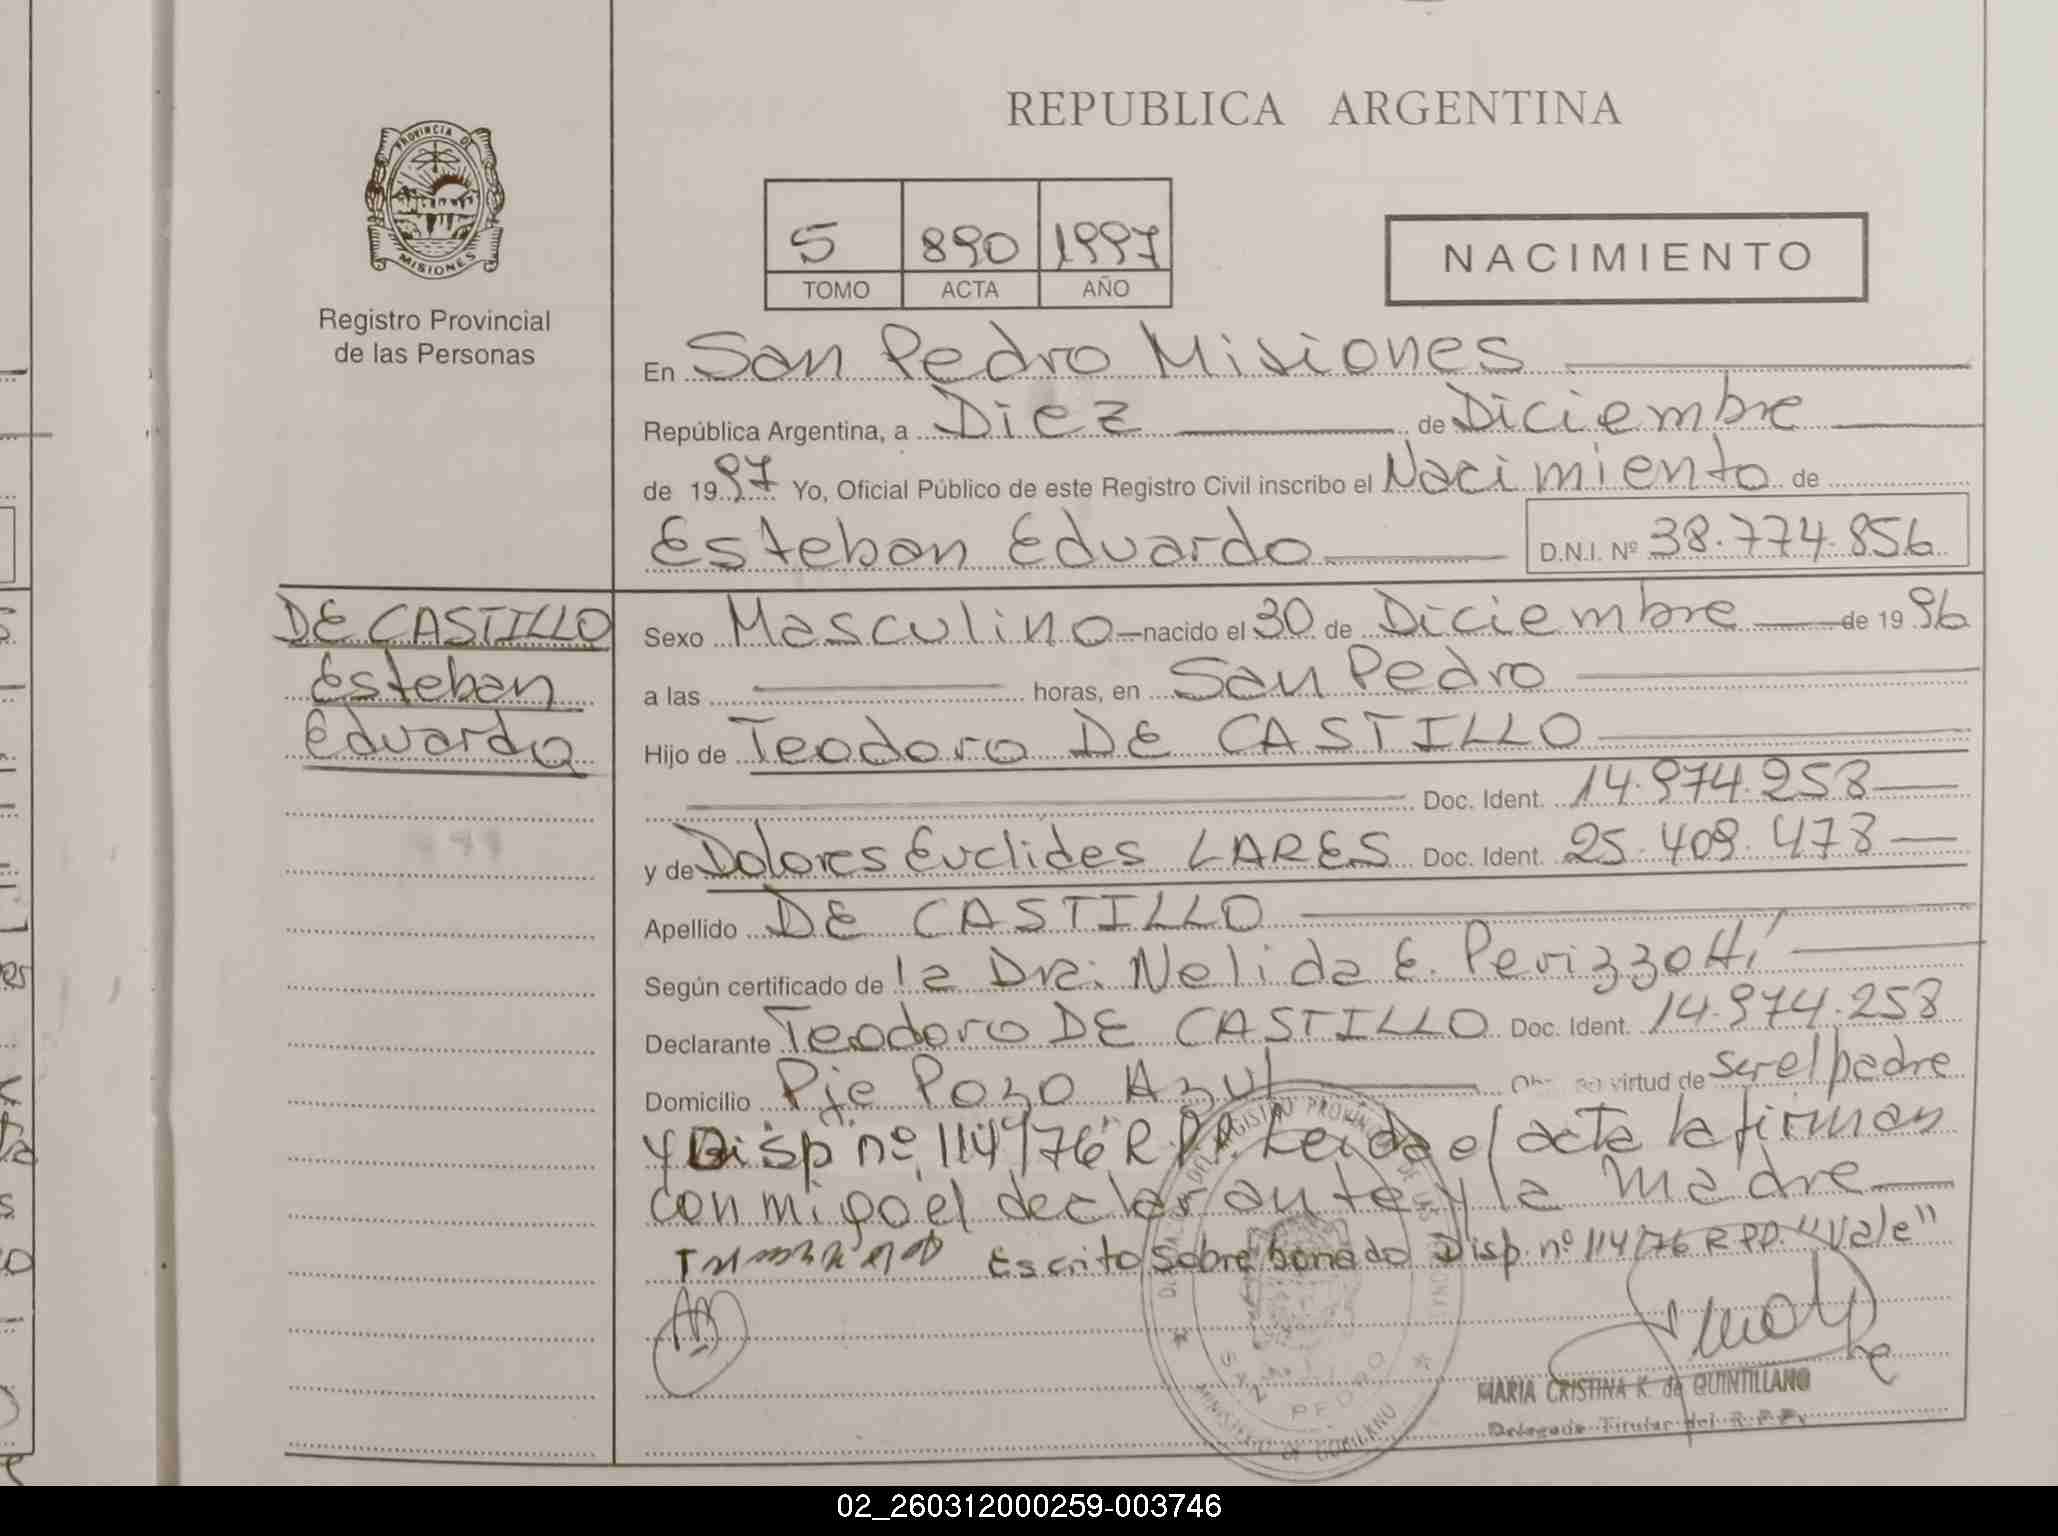 REPUBLICA ARGENTINA
PROVINCIA DE
MISIONES
Registro Provincial
de las Personas
5 890 1997
TOMO ACTA AÑO
NACIMIENTO
En San Pedro Misiones
República Argentina, a Diez de Diciembre
de 1997 Yo, Oficial Público de este Registro Civil inscribo el Nacimiento de
Esteban Eduardo D.N.I. Nº 38.774.856
DE CASTILLO
Esteban
Eduardo
Sexo Masculino nacido el 30 de Diciembre de 1996
a las horas, en San Pedro
Hijo de Teodoro DE CASTILLO
Doc. Ident. 14.974.258
y de Dolores Euclides LARES Doc. Ident. 25.409.478
Apellido DE CASTILLO
Según certificado de la Dra. Nelida E. Perizzotti
Declarante Teodoro DE CASTILLO Doc. Ident. 14.974.258
Domicilio Pje Pozo Azul virtud de ser el padre
y Disp nº 114/76 R.P.P. Leida el acta la firman
conmigo el declarante y la Madre
Escrito sobre borrado Disp. nº 114/76 R.P.P. "Vale"
MARIA CRISTINA K. de QUINTILLANO
Delegada Titular del R.P.P.
SAN PEDRO
MINISTERIO DE GOBIERNO
02_260312000259-003746